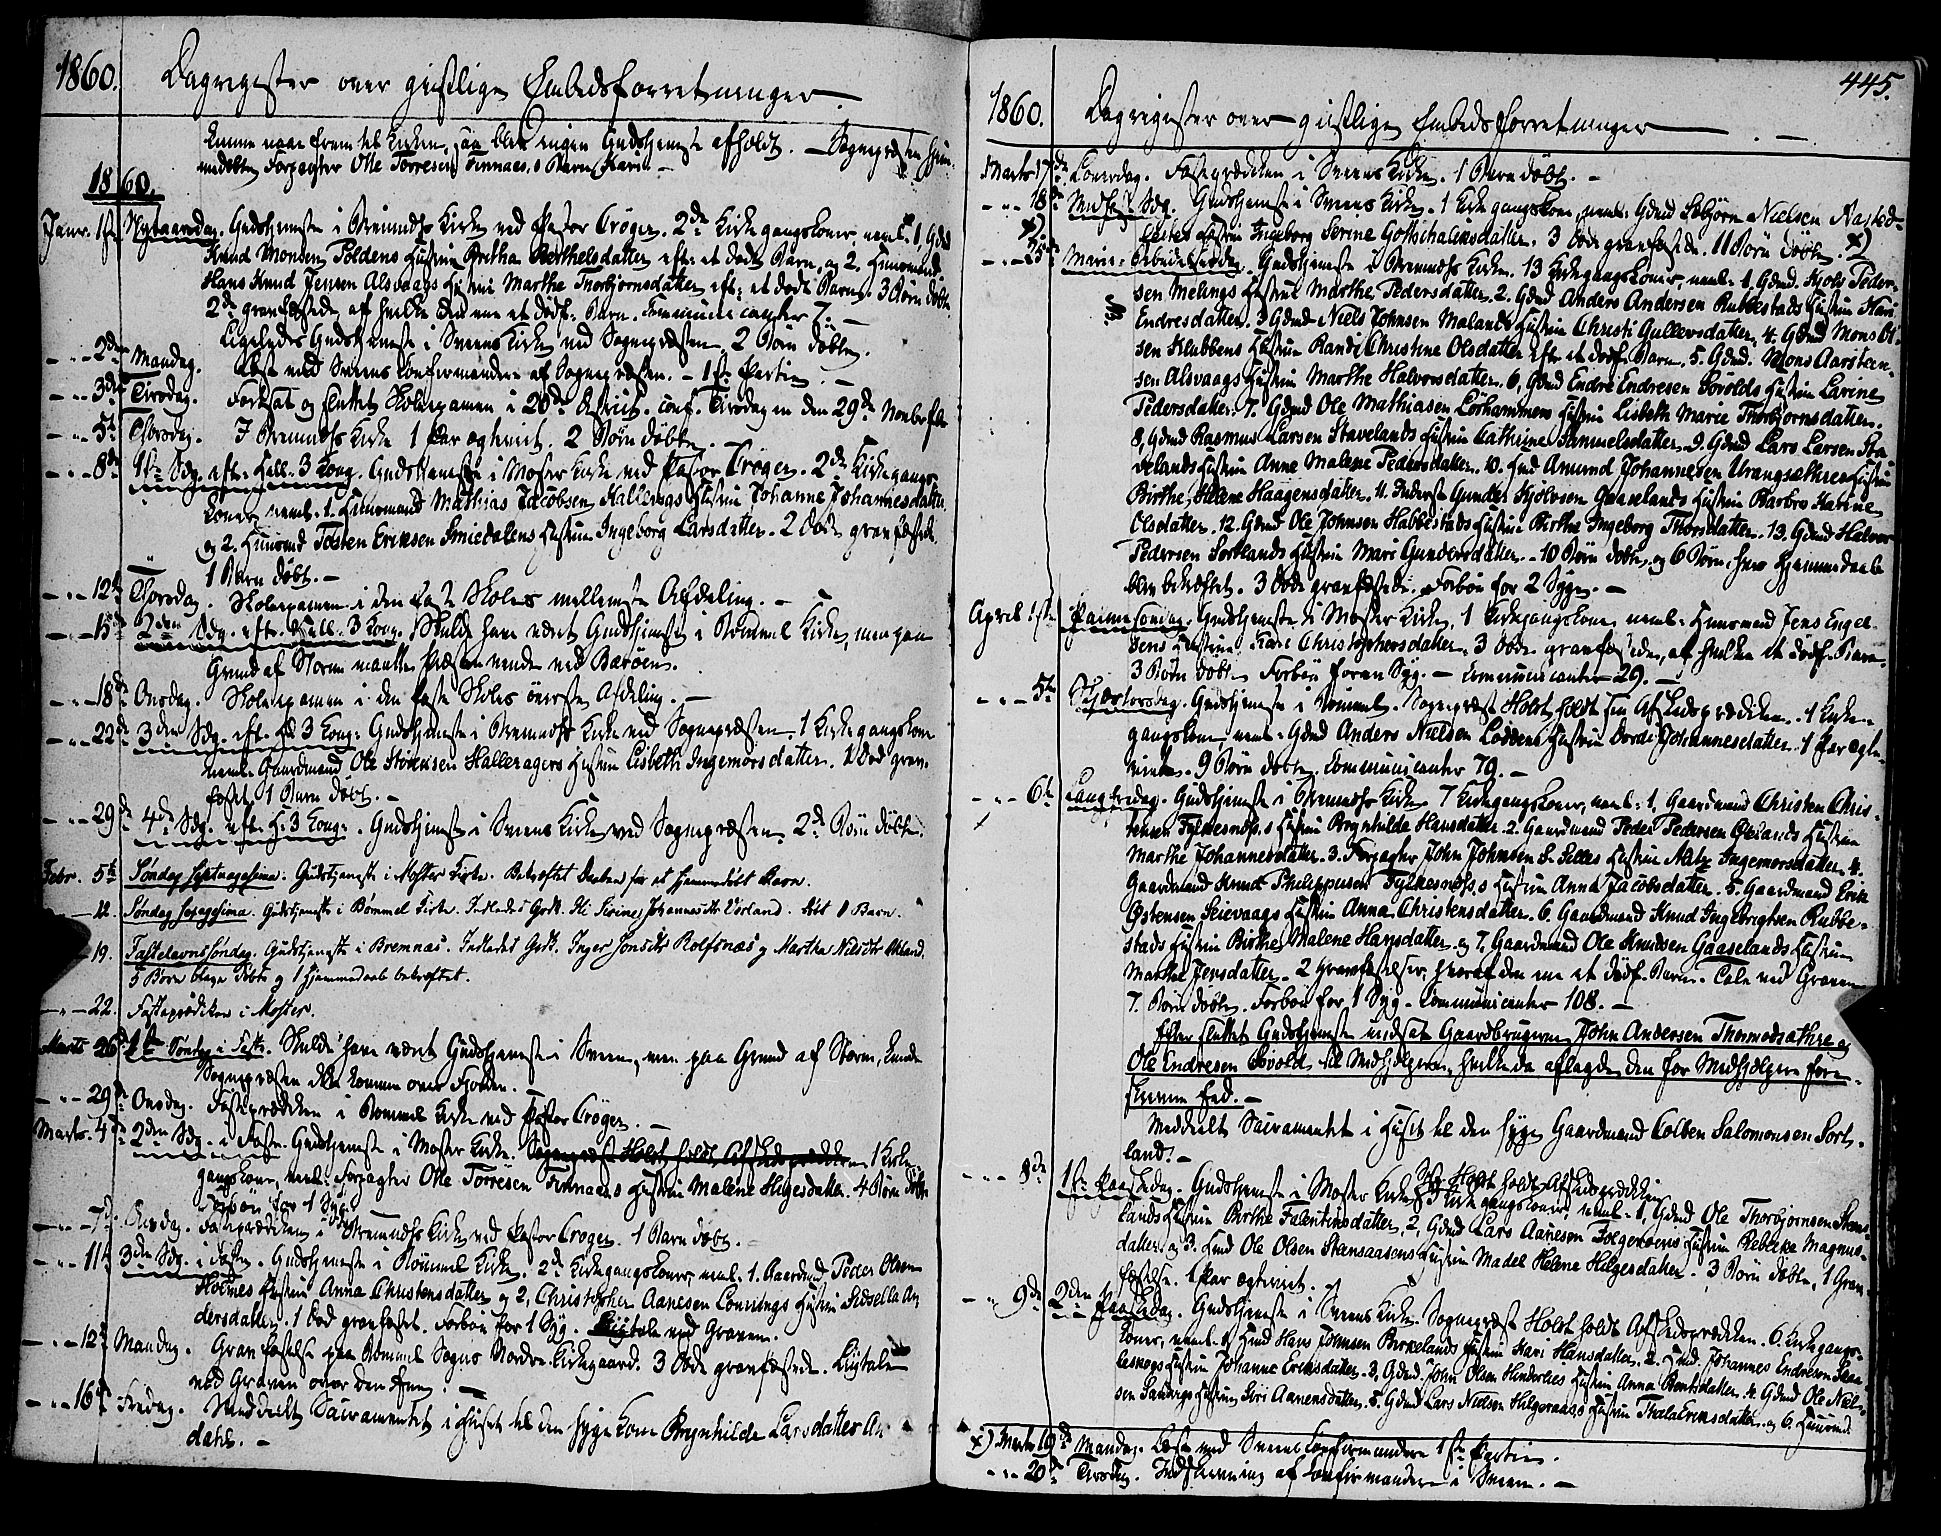 1860. Dagregister over geistlige Embedsforretninger.
kunne naae frem til Kirken, saa blev ingen Gudstjeneste afholdt. — Sognepræsten hjem-
medøbte Forpagter Olle Tørresen Finnaas,s Barn Karin —
1860.
Janr. 1ste Nytaarsdag. Gudstjeneste i Bremnæs Kirke ved Pastor Crøger. 2de Kirkegangskoner, neml. 1, Gdmd
Knud Monsen Foldens Hustrue Gretha Berthelsdatter efter et dødt Barn, og 2. Huusmand
Hans Knud Jensen Alsvaags Hustrue Marthe Thorbjørnsdatter eft: et dødt Barn. 3 Børn døbte
2de gravfæstede af hvilke den ene et dødf. Barn. Communicanter 7. —
Ligeledes Gudstjeneste i Sveens Kirke ved Sognepræsten 2 Børn døbte.
— " — 2den Mandag. Læst med Sveens Confirmander af Sognepræsten. — 1ste Partie. —
— " — 3die Tirsdag. Fortsat og sluttet Skoleexamen i 20de District. conf. Tirsdagen den 29de Novbr. f.A.
— " — 5te Thorsdag. I Bremnæs Kirke 1 Par ægteviet. 2 Børn døbte. —
— " — 8de 1ste Sdg. eft: Hell. 3 Kong. Gudstjeneste i Moster Kirke ved Pastor Crøger. 2de Kirkegangs-
koner, neml. 1. Huusmand Mathias Jacobsen Halleraas Hustrue Johanne Johannesdatter
og 2. Huusmd Tosten Eriksen Smiedalens Hustrue Ingeborg Larsdatter. 2 døde gravfæstede.
1 Barn døbt. —
— " — 12te Thorsdag. Skoleexamen i den faste Skoles mellemste Afdeling. —
— " — 15de 2den Sdg. eft. Hell. 3 Kong. Skulde have været Gudstjeneste i Bømmel Kirke, men paa
Grund af Storm maatte Præsten vende ved Barøen.
— " — 18de Onsdag. Skoleexamen i den faste Skoles øverste Afdeling. —
— " — 22de 3die Sdg. eft. H. 3 Kong: Gudstjeneste i Bremnæs Kirke ved Sognepræsten. 1 Kirkegangskone
neml. Gaardmand Ole Størensen Halleragers Hustrue Lisbeth Ingemorsdatter. 1 Død grav-
fæstet. 1 Barn døbt. —
— " — 29de 4de Sdg. eft. H. 3 Kong: . Gudstjeneste i Sveens Kirke ved Sognepræsten. 2de Børn døbte.
Febr. 5te Søndag Septuagesima. Gudstjeneste i Moster Kirke. Bekræftet Daaben for et hjemmedøbt Barn.
— 12. Søndag Sexagesima. Gudstjeneste i Bømmel Kirke. Indledet Grdk. Sirine Johannesdtr Vorland. Døbt 1 Barn.
— 19. Fastelavnssøndag. Gudstjeneste i Bremnæs. Indledet Grdk. Inger Jonsdtr Rolfsnæs og Martha Nilsdtr Økland.
5 Børn bleve døbte og 1 Hjemmedaab bekræftet.
— " — 22. Fasteprædiken i Moster.
Marts 26de 1ste Søndag i Faste. Skulde have været Gudstjeneste i Sveen, men paa Grund af Storm, kunde
Sognepræsten ikke komme over Fjorden. —
— " — 29de Onsdag. Fasteprædiken i Bømmel Kirke ved Pastor Crøger. —
Marts. 4de 2den Sdg. i Faste. Gudstjeneste i Moster Kirke. Sognepræst Holst holdt Afskedsprædiken 1 Kirke-
gangskone, neml: Forpagter Olle Tørresen Finnaas's Hustrue Malene Helgesdatter. 4 Børn døbte
Forbøn for 1 Syg. —
— " — 7de Onsdag. Fasteprædiken i Bremnæs Kirke ved Pastor Crøger. 1 Barn døbt. —
— " — 11te 3die Sdg. i Faste. Gudstjeneste i Bømmel Kirke. 2de Kirkegangskoner, neml. 1. Gaardmd Peder Olsen
Holmes Hustrue Anna Christensdatter og 2, Christopher Aanesen Hustrue Sidsella An-
dersdatter. 1 Død gravfæstet. Forbøn for 1 Syg. Liigtale ved Graven.
— " — 12te Mandag. Gravfæstelse paa Bømmel Sogns Nordre Kirkegaard. 3 Døde gravfæstede. Liigtale
ved Graven over den Ene. —
— " — 16de Fredag. Meddeelt Sacramentet i Huset til den syge Kone Brynhilde Larsdatter An
dahl. —
445.
1860. Dagregister over geistlige Embedsforretninger — . —
Marts 17de Løverdag. Fasteprædiken i Sveens Kirke. 1 Barn døbt. —
— " — 18de Midfaste Sdg. Gudstjeneste i Sveens Kirke. 1 Kirkegangskone, neml. Gdmd Esbjørn Nielsen Aasked-
x). Hustrue Ingeborg Serine Gottschalksdatter. 3 døde gravfæstede. 11 Børn døbte. x)
— " — 25de Mariæ Bebudelsesdag. Gudstjeneste i Bremnæs Kirke. 13 Kirkegangskoner, neml. 1. Gdmd. Kjols Peder-
sen Melings Hustrue Marthe Pedersdatter. 2. Gdmd Anders Andersen Rubbestads Hustrue Kari
Endresdatter. 3 Gdmd Niels Johnsen Malands Hustrue Christi Gulleivsdatter. 4. Gdmd Mons Ol-
sen Klubbens Hustrue Randi Christine Olsdatter efter et dødf. Barn. 5. Gdmd. Mons Aarsteen-
sen Alsvaags Hustrue Marthe Halvorsdatter. 6, Gdmd Endre Endresen Hustrue Larine
Pedersdatter. 7. Gdmd Ole Mathiasen Lørhammers Hustrue Lisbeth Marie Thorbjørnsdatter.
8, Gdmd Rasmus Larsen Stavelands Hustrue Cathrine Samuelsdatter. 9. Gdmd Lars Larsen Sta-
velands Hustrue Anne Malene Pedersdatter. 10. Hmd Amund Johannesen Urangsæthres Hustrue
Birthe Helene Haagensdatter. 11. Inderst Gunder Kjølvsen Gaaselands Hustrue Barbro Karine
Olsdatter. 12. Gdmd Ole Johnsen Habbestads Hustrue Birthe Ingeborg Thorsdatter. 13. Gdmd Halvor
Pedersen Sortlands Hustrue Mari Gundersdatter. — 10 Børn døbte, og 6 Børns Hjemmedaab
blev bekræftet. 3 døde gravfæstede. Forbøn for 2 Syge. —
April 1ste Palmesøndag. Gudstjeneste i Moster Kirke. 1 Kirkegangskone neml. Huusmand Jens Engel-
sens Hustrue Kari Christophersdatter. 3 døde gravfæstede, af hvilke et dødf. Barn.
3 Børn døbte. Forbøn for en Syg. — Communicanter 29. —
— " — 5te Skjærtorsdag. Gudstjeneste i Bømmel. Sognepræst Holst holdt sin Afskedsprædiken. 1 Kirke-
gangskone neml. Gdmd Anders Nielsen Løddens Hustrue Dordi Johannesdatter. 1 Par ægte-
viede. 9 Børn døbte. Communicanter 79. —
— " — 6te Langfredag. Gudstjeneste i Bremnæs Kirke 7 Kirkegangskoner, neml: 1, Gaardmand Christen Chris-
tensen Fylkesnæs,s Hustrue Brynhilde Hansdatter. 2. Gaardmand Peder Pedersen Hustrue
Marthe Johannesdatter. 3. Forpagter John Johnsen S. Selles Hustrue Ingemorsdatter. 4.
Gaardmand Knud Philippusen Fylkesnæs,s Hustrue Anna Jacobsdatter. 5. Gaardmand Erik
Østensen Seievaags Hustrue Anna Christensdatter. 6. Gaardmand Knud Ingebrigtsen Rubbe-
stads Hustrue Birthe Malene Hansdatter. og 7, Gaardmand Ole Knudsen Gaaselands Hustrue
Marthe Jensdatter. 2 Gravfæstelser, hvoraf den ene et dødf. Barn. Tale ved Graven
7. Børn døbte. Forbøn for 1 Syg. Communicanter 108. —
Efter sluttet Gudstjeneste indsat Gaardbrugerne John Andersen Thormodsæthre og
Ole Endresen Sovold til Medhjelpere, hvilke da aflagde den for Medhjelpere fore-
skrevne Eed. —
Meddeelt Sacramentet i Huset til den syge Gaardmand Colben Salomonsen Sort-
land. —
— " — 8de 1ste Paaskedag. Gudstjeneste i Moster Kirke Sp. Holst holdt Afskedsprædiken
3 Kirkegangskoner, neml. 1, Gdmd Ole Thorbjørnsen
lands Hustrue Birthe Falentinsdatter, 2, Gdmd Lars Aanesen Folgerøens Hustrue Rebecke Magnus-
datter og 3. Hmd Ole Olsen Stensaasens Hustrue Madel Helene Helgesdatter. 3 Børn døbte, 1 Grav-
fæstelse. 1 Par ægteviet. —
— " 9de 2den Paaskedag. Gudstjeneste i Sveens Kirke. Sognepræst Holst holdt Afskedsprædiken. 6 Kirkegangs-
koner, neml. 1. Hmd Hans Johnsen Birkelands Hustrue Kari Hansdatter. 2. Hmd. Johannes Endresen
Hustrue Johanne Eriksdatter. 3, Gdmd. John Olsen Hinderlies Hustrue Anna Bentsdatter. 4. Gdmd Ole Niel-
sen Hustrue Siri Aanensdatter. 5. Gdmd Lars Nielsen Hustrue Thala Eriksdatter. og 6. Huusmd
x) Marts 19de Mandag. Læst med Sveens Confirmander 1ste Partie.
— " — 20de Tirsdag. Indskrivning af Confirmander i Sveen. —